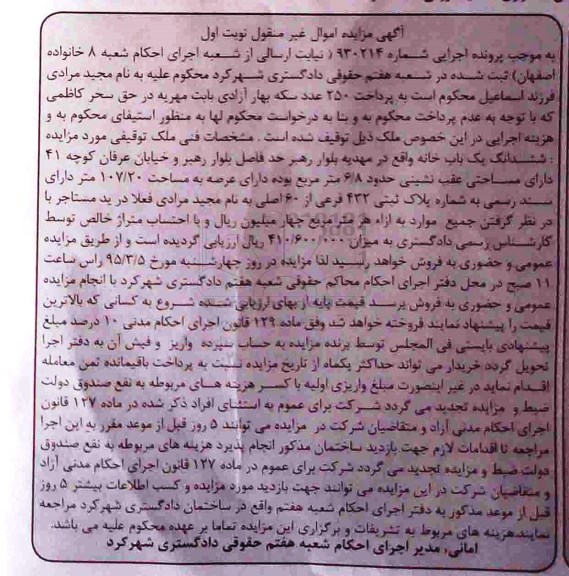 آگهی مزایده اموال غیر منقول نوبت اول
به موجب پرونده اجرایی شماره ۹۳۰۲۱۴ ( نیابت ارسالی از شعبه اجرای احکام شعبه ۸ خانواده
اصفهان) ثبت شده در شعبه هفتم حقوقی دادگستری شهرکرد محکوم علیه به نام مجید مرادی
فرزند اسماعیل محکوم است به پرداخت ۲۵۰ عدد سکه بهار آزادی بابت مهریه در حق سحر کاظمی
که با توجه به عدم پرداخت محکوم به و بنا به درخواست محکوم لها به منظور استیفای محکوم به و
هزینه اجرایی در این خصوص ملک ذیل توقیف شده است . مشخصات فنی ملک توقیفی مورد مزایده
: ششدانگ یک باب خانه واقع در مهدیه بلوار رهبر حد فاصل بلوار رهبر و خیابان عرفان کوچه ۴۱
دارای مساحتی عقب نشینی حدود ۶/۸ متر مربع بوده دارای عرصه به مساحت ۱۰۷/۲۰ متر دارای
سند رسمی به شماره پلاک ثبتی ۴۳۲ فرعی از ۶۰ اصلی به نام مجید مرادی فعلا در ید مستاجر با
در نظر گرفتن جمیع موارد به ازاء هر مترمربع چهار میلیون ریال و با احتساب متراژ خالص توسط
کارشناس رسمی دادگستری به میزان ۴۱۰/۶۰۰/۰۰۰ ریال ارزیابی گردیده است و از طریق مزایده
عمومی و حضوری به فروش خواهد رسید لذا مزایده در روز چهارشنبه مورخ ۹۵/۳/۵ راس ساعت
۱۱ صبح در محل دفتر اجرای احکام محاکم حقوقی شعبه هفتم دادگستری شهرکرد با انجام مزایده
عمومی و حضوری به فروش برسد قیمت پایه از بهای ارزیابی شده شروع به کسانی که بالاترین
قیمت را پیشنهاد نمایند فروخته خواهد شد وفق ماده ۱۲۹ قانون اجرای احکام مدنی ۱۰ درصد مبلغ
پیشنهادی بایستی فی المجلس توسط برنده مزایده به حساب سپرده واریز و فیش آن به دفتر اجرا
تحویل گردد خریدار می تواند حداکثر یکماه از تاریخ مزایده نسبت به پرداخت باقیمانده ثمن معامله
اقدام نماید در غیر اینصورت مبلغ واریزی اولیه با کسر هزینه های مربوطه به نفع صندوق دولت
ضبط و مزایده تجدید می گردد شرکت برای عموم به استثنای افراد ذکر شده در ماده ۱۲۷ قانون
اجرای احکام مدنی آزاد و متقاضیان شرکت در مزایده می توانند ۵ روز قبل از موعد مقرر به این اجرا
مراجعه تا اقدامات لازم جهت بازدید ساختمان مذکور انجام پذیرد هزینه های مربوطه به نفع صندوق
دولت ضبط و مزایده تجدید می گردد شرکت برای عموم در ماده ۱۲۷ قانون اجرای احکام مدنی آزاد
و متقاضیان شرکت در این مزایده می توانند جهت بازدید مورد مزایده و کسب اطلاعات بیشتر ۵ روز
قبل از موعد مذکور به دفتر اجرای احکام شعبه هفتم واقع در ساختمان دادگستری شهرکرد مراجعه
نمایند.هزینه های مربوط به تشریفات و برگزاری این مزایده تماما بر عهده محکوم علیه می باشد.
امانی، مدیر اجرای احکام شعبه هفتم حقوقی دادگستری شهرکرد